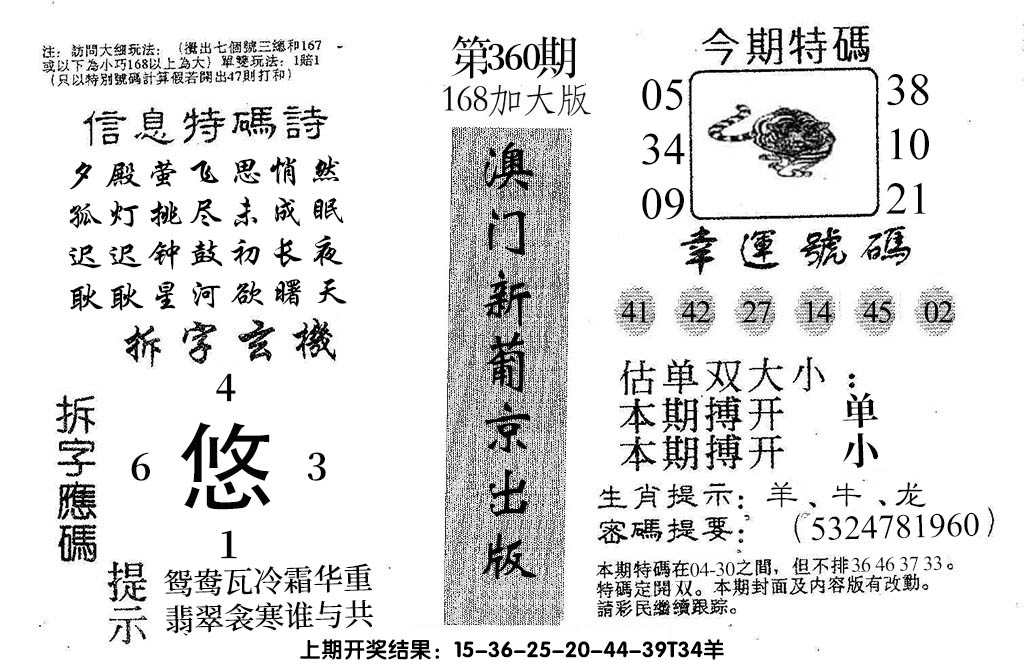 注：訪問大细玩法：（攪出七個號三總和167
或以下為小巧168以上為大）單雙玩法：1賠1
（只以特別號碼計算假若開出47則打和）
信息特碼詩
夕殿萤飞思悄然
孤灯挑尽未成眠
迟迟钟鼓初长夜
耿耿星河欲曙天
拆字玄機
拆字應碼
4
6 悠 3
1
提示
鸳鸯瓦冷霜华重
翡翠衾寒谁与共
第360期
168加大版
澳门新葡京出版
今期特碼
05 38
34 10
09 21
幸運號碼
41 42 27 14 45 02
估单双大小：
本期搏开 单
本期搏开 小
生肖提示：羊、牛、龙
密碼提要：（5324781960）
本期特碼在04-30之間，但不排36 46 37 33。
特碼定開双。本期封面及内容版有改動。
請彩民繼續跟踪。
上期开奖结果：15-36-25-20-44-39T34羊